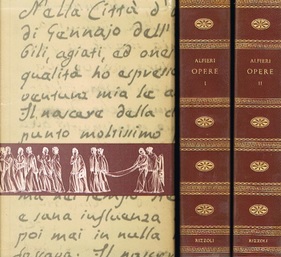 Nella Città d'
di Gennajo dell'
bili, agiati, ed one
qualità ho espress
ventura mia le a
Il nascere della c
punto moltissimo
ma nei tempo
e sana influenza
poi mai in nulla
Il nascere
ALFIERI
OPERE
I
RIZZOLI
ALFIERI
OPERE
II
RIZZOLI